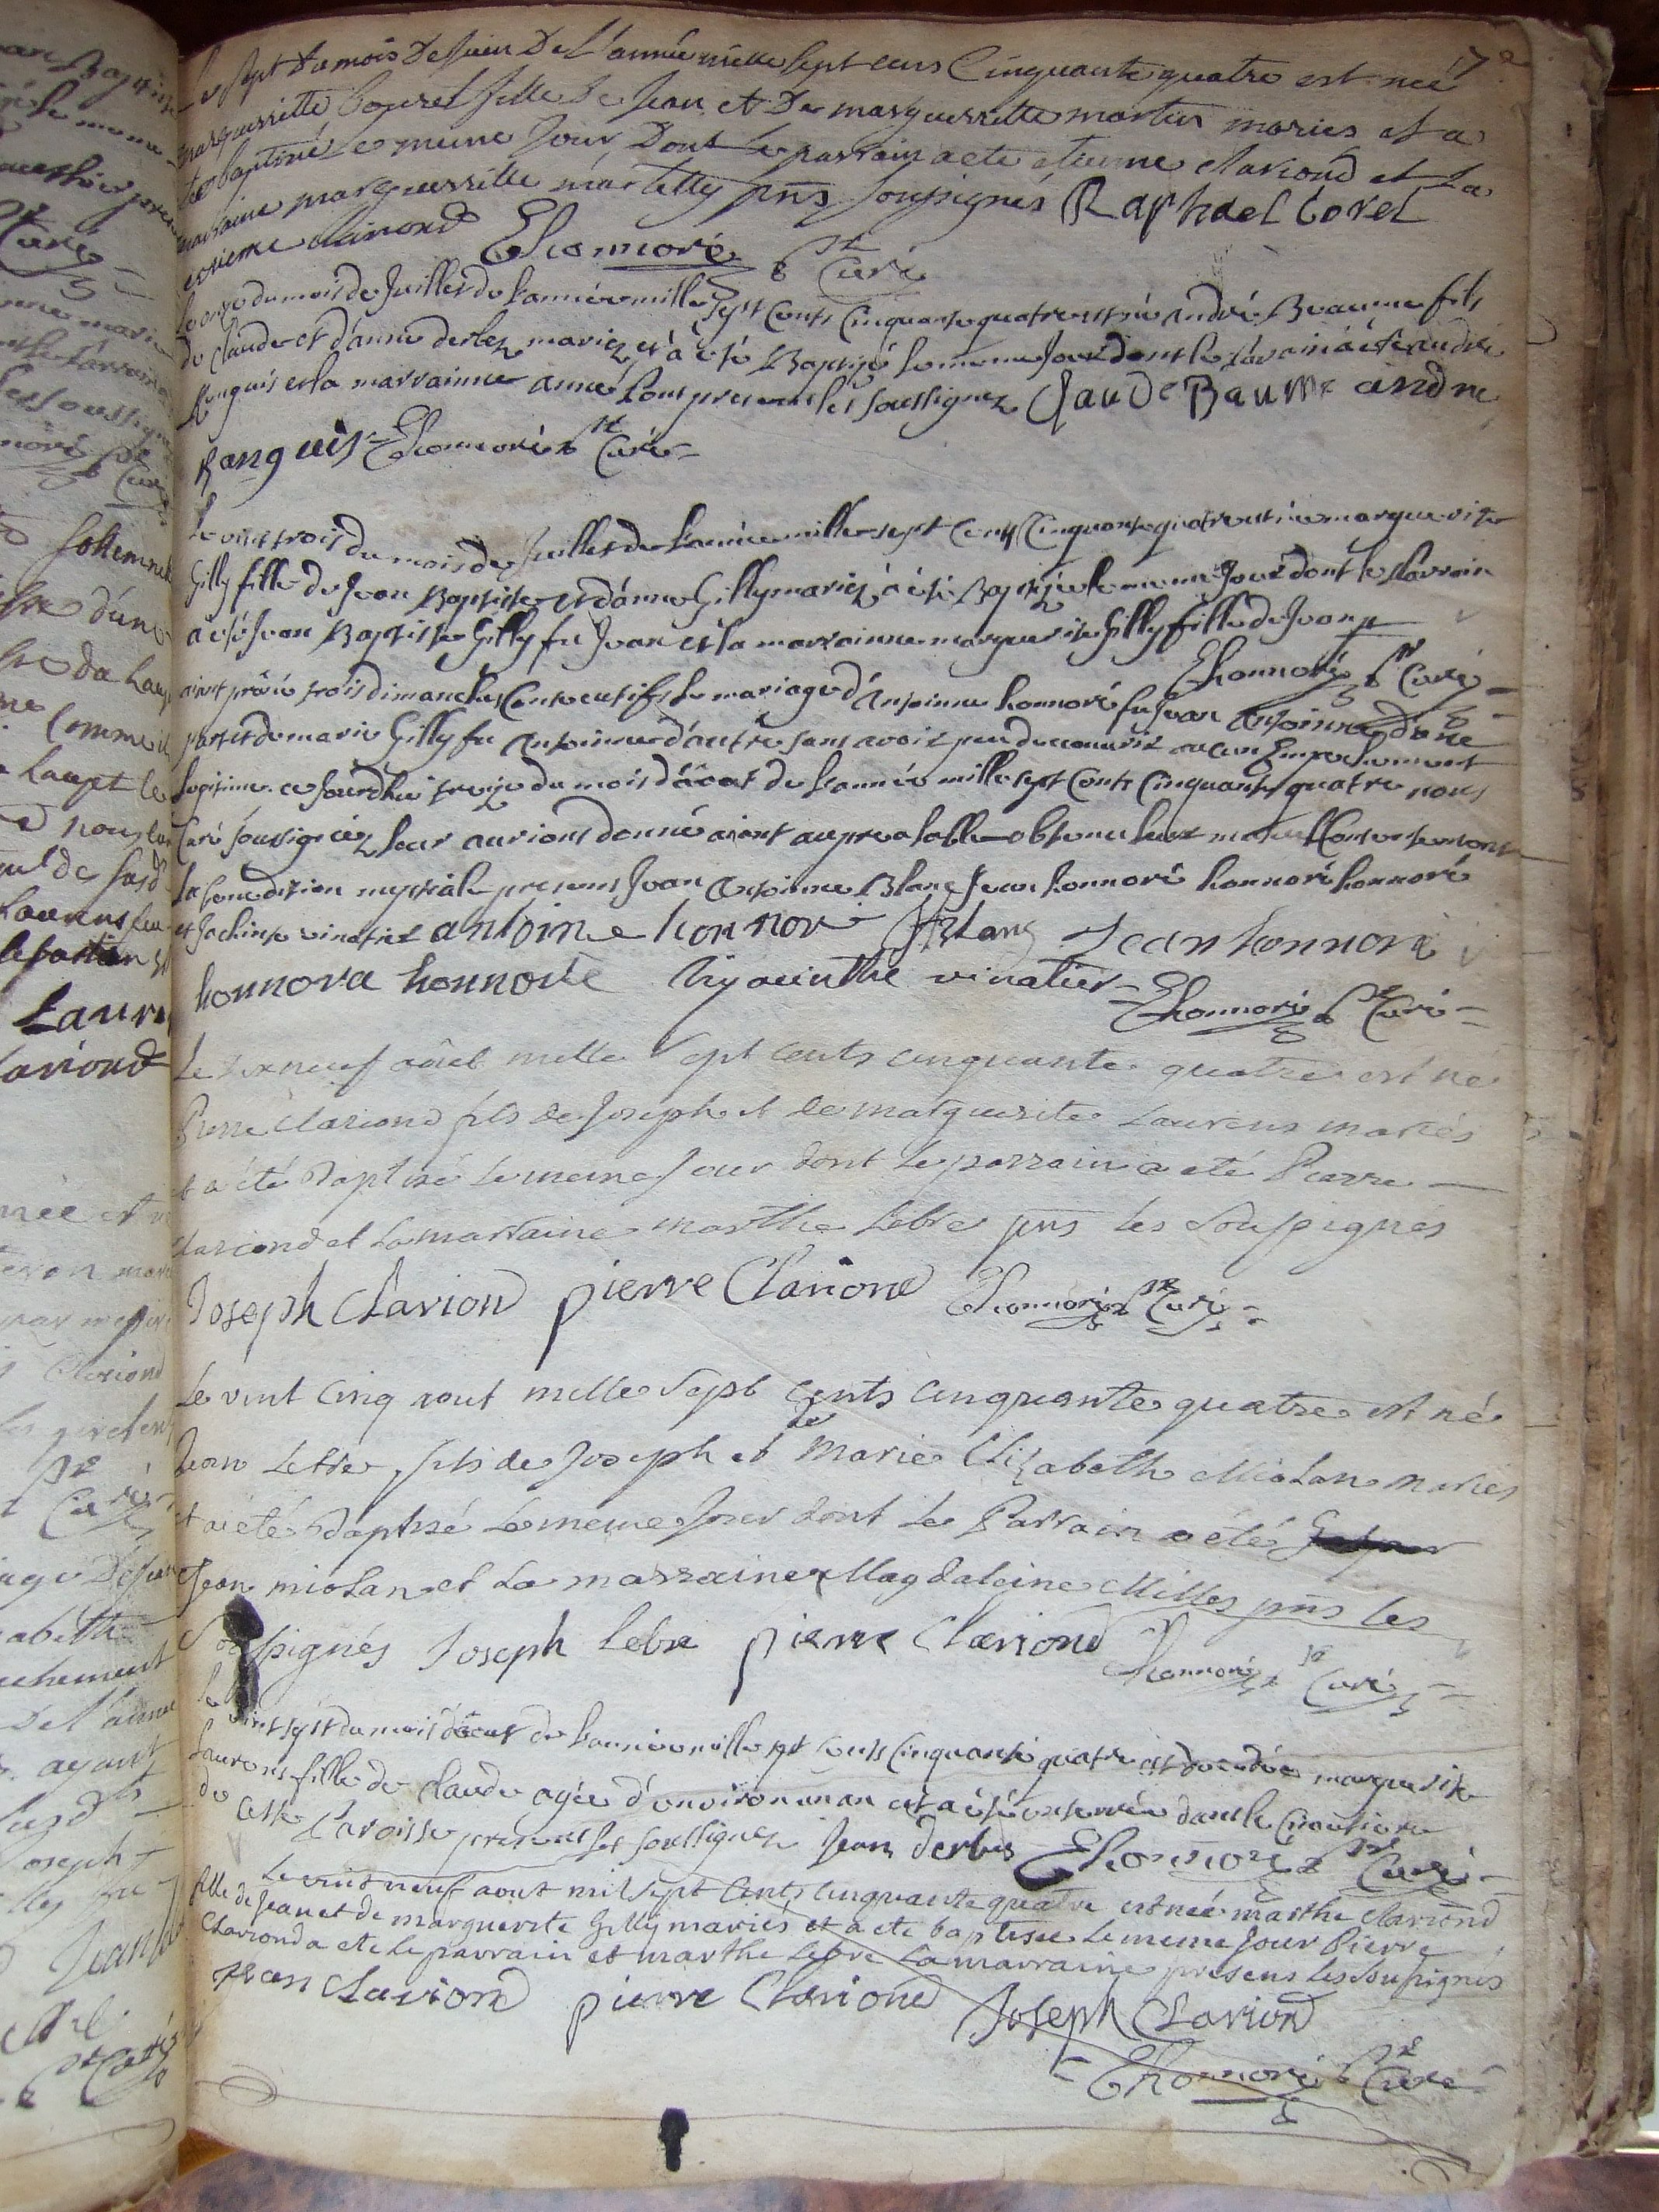 Le sept du mois De juin De L'année mille sept cens Cinquante quatre est neé
marguerritte borrel fille De Jean et De marguerritte martin mariés et a
eté baptiseé le meme Jour Dont Le parrain a eté etienne clariond et La
marraine marguerritte martelly pns soussignés Raphael borel
estiene clariond Ehonnoré ptr Curé
Le onze du mois de Juillet de l'année mille sept Cents Cinquante quatre est né André Beaume fils
de Claude et d'anne derbez mariez et à été Baptizé le meme Jour dont le parrain à été andré
Ranguis et la marrainne anne presents les soussignez Claude Baume andre
Ranguis Ehonnoré ptr Curé
Le vint trois du mois de Juillet de l'année mille sept Cents Cinquante quatre est née marguerite
Gilly fille de Jean Baptiste et d'anne Gilly mariez à été Baptizée le meme Jour dont le parrain
à été Jean Baptiste Gilly fu Jean et la marrainne marguerite Gilly fille de Jean
Ehonnoré ptr Curé
aiant prôné trois dimanches Consecutifs le mariage d'Antoinne honnoré fu Jean Antoinne d'une
part et de marie Gilly fu Antoinne d'autre sans avoir peu decouvrir aucun Empechement
legitime ce Jourdhui treize du mois d'àoût de l'année mille sept Cents Cinquante quatre nous
Curé soussignéz leur aurions donné aiant au prealable obtenu leur mutuel Consentement
la benediction nuptiale presens Jean Antoinne Blanc Jean honnoré honnoré honnoré
et Jachinte vinatier antoine honnore Blanc Jean honnoré
honnore honnoré hyacinthe vinatier Ehonnoré ptr Curé
Le dix neuf août mille sept cents cinquante quatre est né
Pierre Clariond fils de Joseph et de marguerite Laurens mariés
et a été baptisé le meme jour dont le parrain a été Pierre
Clariond et la marraine marthe Lebre pns les soussignés
Joseph Clariond pierre Clariond Ehonnoré ptr Curé
Le vint cinq aout mille sept cents cinquante quatre est né
Jean Lebre fils de Joseph et de Marie Elizabeth Miolan mariés
et a été baptisé le meme jour dont le Parrain a été
Jean miolan et la marraine Magdaleine Milles pns les
soussignés Joseph lebre pierre Clariond Ehonnoré ptr Curé
Le vint sept du mois d'àout de l'année mille sept Cents Cinquante quatre est decedée marguerite
Laurens fille de Claude agée d'environ un an et à été enterrée dans le Cimetiere
de Cette Paroisse presents les soussignez Jean derbes Ehonnoré ptr Curé
Le vint neuf aout mil sept Cents cinquante quatre est née marthe Clariond
fille de Jean et de marguerite Gilly mariés et a ete baptisée le meme Jour Pierre
Clariond a ete le parrain et marthe Lebre la marraine presens les soussignés
Jean Clariond pierre Clariond Joseph Clariond
Ehonnoré ptr Curé